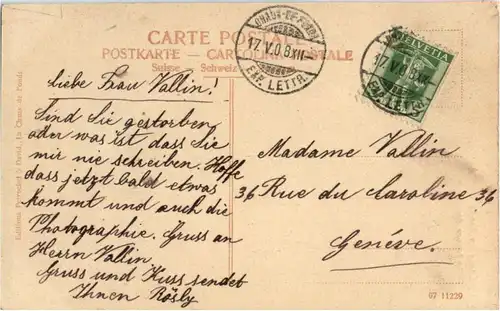 CARTE POSTALE
POSTKARTE — CARTOLINA POSTALE
Suisse — Schweiz
CHAUX-DE-FONDS
17.V.08.XII
EXP. LETTR.
HELVETIA
17.V.08.XII
EXP. LETTR.
Liebe Frau Vallin!
Sind Sie gestorben
oder was ist, dass Sie
mir nie schreiben. Hoffe
dass jetzt bald etwas
kommt und auch die
Photographie. Gruss an
Herrn Vallin
Gruss und Kuss sendet
Ihnen Rösly
Madame Vallin
36 Rue du Caroline 36
Genéve.
La Chaux de Fonds
07 11229